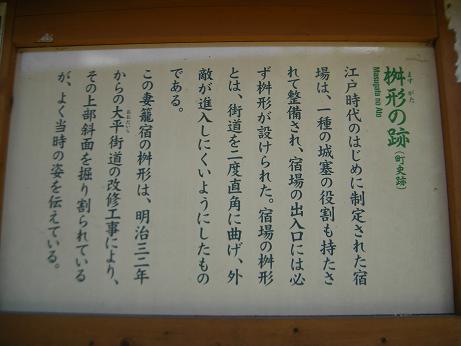 桝形の跡(町史跡)
ます がた
Masugata no Ato
江戸時代のはじめに制定された宿
場は、一種の城塞の役割も持たさ
れて整備され、宿場の出入口には必
ず桝形が設けられた。宿場の桝形
とは、街道を二度直角に曲げ、外
敵が進入しにくいようにしたもの
である。
この妻籠宿の桝形は、明治三二年
からの大平街道の改修工事により、
おおだいら
その上部斜面を掘り割られている
が、よく当時の姿を伝えている。